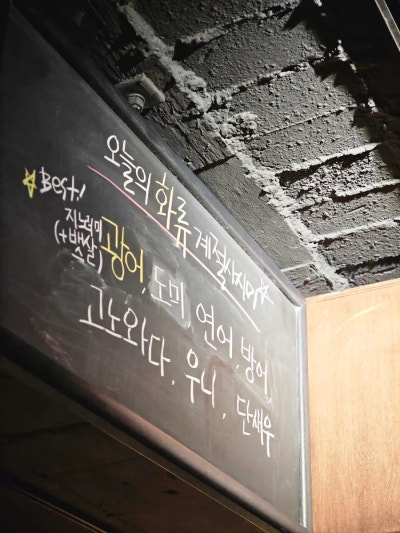 오늘의 화류 계절사시미
Best!
지느러미 (+뱃살) 광어, 도미 연어, 방어,
고노와다, 우니, 단새우